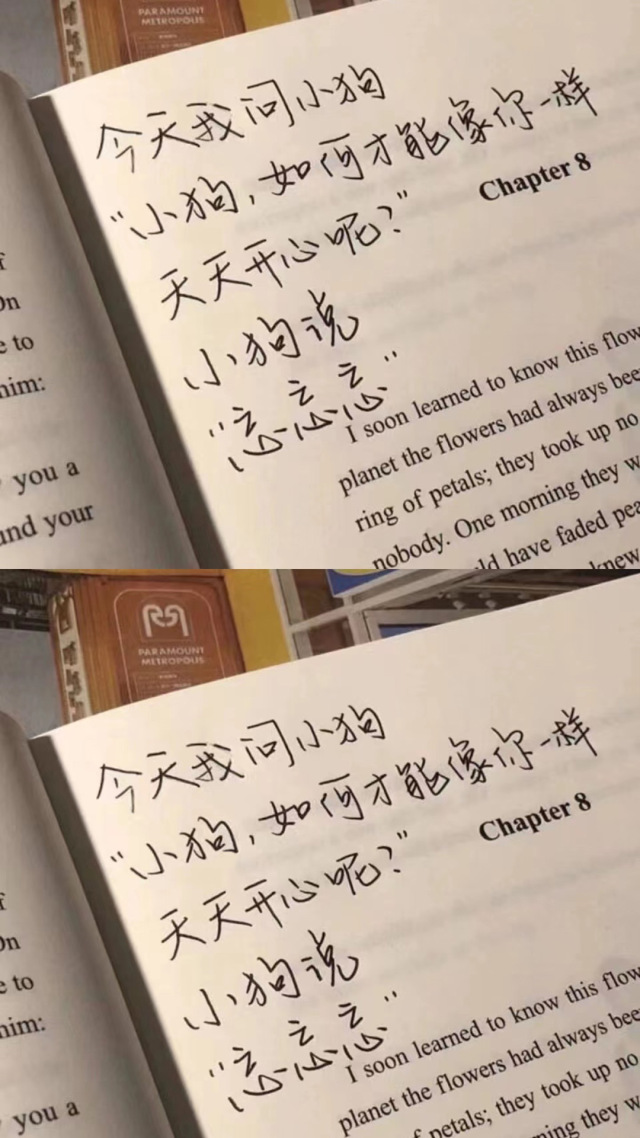 PARAMOUNT
METROPOLIS
今天我问小狗
“小狗,如何才能像你一样
Chapter 8
天天开心呢?”
小狗说
“忘忘忘”
to
him:
you a
and your
I soon learned to know this flow
planet the flowers had always bee
ring of petals; they took up no
nobody. One morning they w
ld have faded pea
knew
PARAMOUNT
METROPOLIS
今天我问小狗
“小狗,如何才能像你一样
Chapter 8
天天开心呢?”
小狗说
“忘忘忘”
to
him:
you a
I soon learned to know this flow
planet the flowers had always bee
of petals; they took up no
ning they w